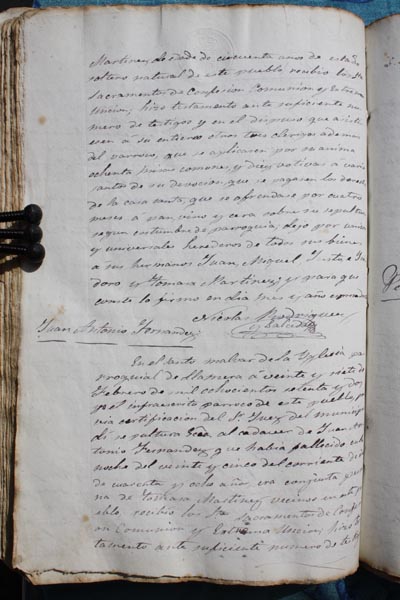 Martinez de edad de cincuenta años de estado
soltero natural de este pueblo recibio los Stos
Sacramentos de Confesion Comunion y Extrema
Uncion, hizo testamento ante suficiente nu
mero de testigos y en el dispuso que asistie
sen á su entierro otros tres clerigos ademas
del parroco, que se aplicasen por su anima
ochenta misas comunes, y diez votivas á varios
santos de su devocion, que se pagasen los derechos
de la casa santa, que se ofrendase por cuatro
meses a pan, vino y cera sobre su sepultura
segun costumbre de parroquia, dejo por unicos
y universales herederos de todos sus bienes
a sus hermanos Juan, Miguel, Justo, Isi
doro y Tomasa Martinez; y para que
conste lo firmo en dia mes y año espresados
Nicolas Rodriguez
y Salcedo
Juan Antonio Fernandez
En el Santo de la Yglesia pa
rroquial de á veinte y siete de
Febrero de mil ochocientos setenta y dos
yo el infrascrito parroco de este pueblo, pre
via certificacion del Sr. Juez del municipio
di sepultura Ecca. al cadaver de Juan An
tonio Fernandez, que habia fallecido en la
noche del veinte y cinco del corriente, de edad
de cuarenta y ocho años, era conjunta perso
na de Martinez vecinos en este pue
blo, recibio los Stos Sacramentos de Confesi
on Comunion y Estrema Uncion, hizo tes
tamento ante suficiente numero de